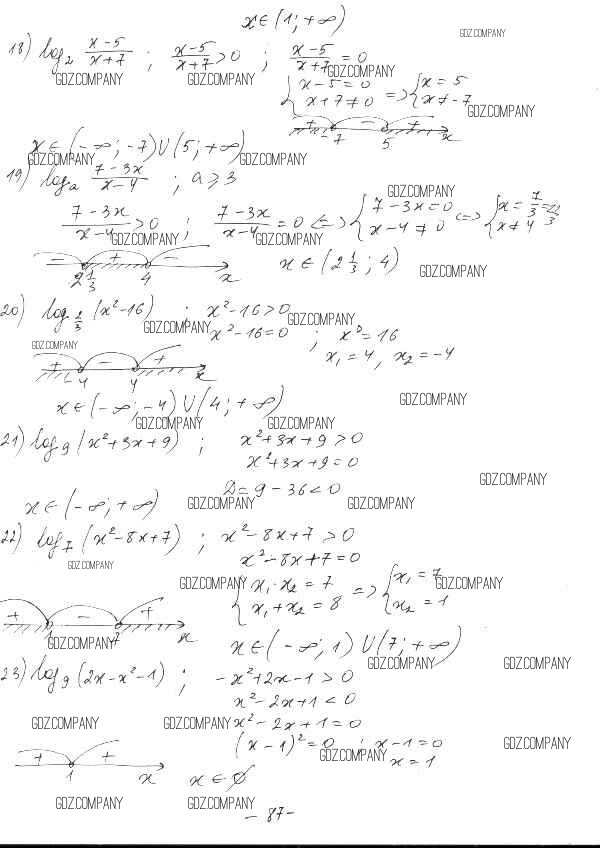 x ∈ (1; +∞)
GDZ.COMPANY
18) log₂ (x-5)/(x+7) ; (x-5)/(x+7) > 0 ; (x-5)/(x+7) = 0
GDZ.COMPANY GDZ.COMPANY GDZ.COMPANY
{ x-5=0 => { x=5
x+7≠0 x≠-7
GDZ.COMPANY
+ - +
-7 5 x
x ∈ (-∞; -7) ∪ (5; +∞)
GDZ.COMPANY GDZ.COMPANY
19) logₐ (7-3x)/(x-4) ; a ≥ 3
GDZ.COMPANY
(7-3x)/(x-4) > 0 ; (7-3x)/(x-4) = 0 <=> { 7-3x=0 <=> { x = 7/3 =
x-4≠0 x≠4
GDZ.COMPANY GDZ.COMPANY
- + -
2 1/3 4 x
x ∈ (2 1/3; 4)
GDZ.COMPANY
20) log₂/₃ (x²-16) ; x²-16>0
GDZ.COMPANY GDZ.COMPANY
x²-16=0 ; x²=16
GDZ.COMPANY
x₁=4, x₂=-4
+ - +
-4 4 x
x ∈ (-∞; -4) ∪ (4; +∞)
GDZ.COMPANY
GDZ.COMPANY GDZ.COMPANY
21) log₉ (x²+3x+9) ; x²+3x+9>0
x²+3x+9=0
GDZ.COMPANY
D=9-36<0
x ∈ (-∞; +∞)
GDZ.COMPANY GDZ.COMPANY
22) log₇ (x²-8x+7) ; x²-8x+7>0
x²-8x+7=0
GDZ.COMPANY
GDZ.COMPANY GDZ.COMPANY
{ x₁·x₂=7 => { x₁=7
x₁+x₂=8 x₂=1
+ - +
1 7 x
GDZ.COMPANY
x ∈ (-∞; 1) ∪ (7; +∞)
GDZ.COMPANY GDZ.COMPANY
23) log₉ (2x-x²-1) ; -x²+2x-1>0
x²-2x+1<0
GDZ.COMPANY GDZ.COMPANY
x²-2x+1=0
(x-1)²=0 ; x-1=0
GDZ.COMPANY GDZ.COMPANY
x=1
+ +
1 x
x ∈ ∅
GDZ.COMPANY GDZ.COMPANY
- 87 -